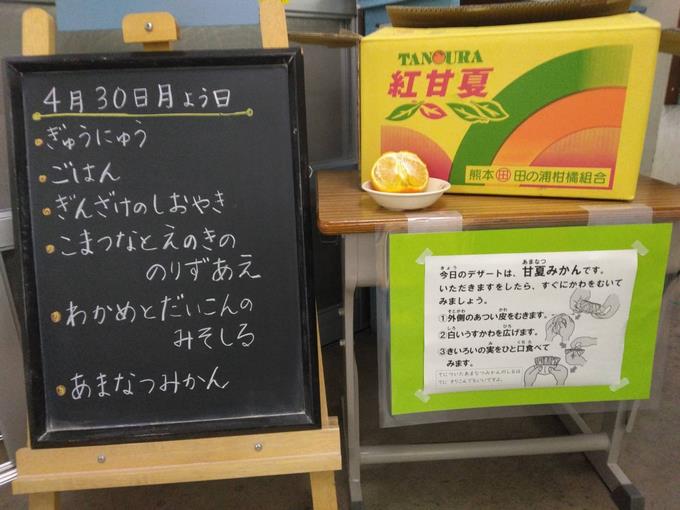 4月30日月よう日
ぎゅうにゅう
ごはん
ぎんざけのしおやき
こまつなとえのきの
のりずあえ
わかめとだいこんの
みそしる
あまなつみかん
TANOURA
紅甘夏
熊本 田 田の浦柑橘組合
今日のデザートは、甘夏みかんです。
いただきますをしたら、すぐにかわをむいて
みましょう。
①外側のあつい皮をむきます。
②白いうすかわを広げます。
③きいろいの実をひと口食べて
みます。